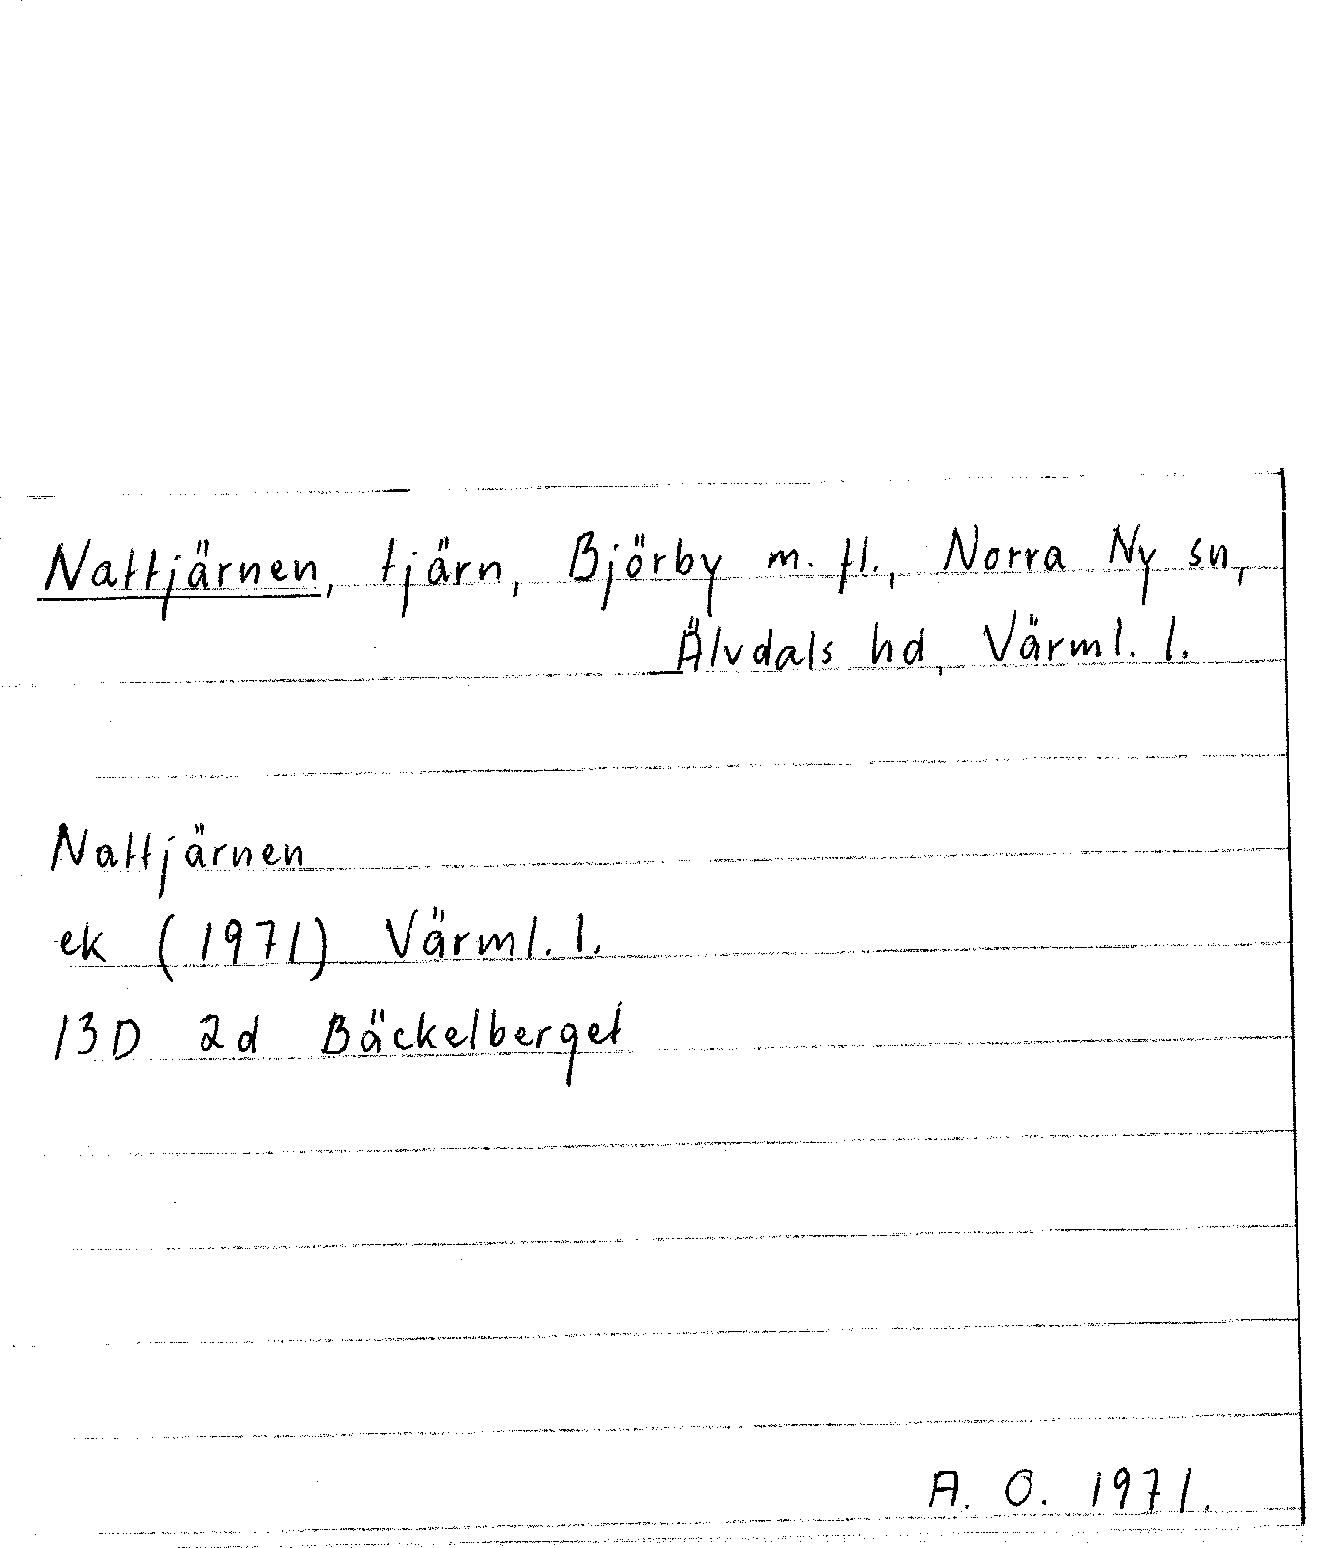 Nattjärnen, tjärn, Björby m. fl., Norra Ny sn,
Älvdals hd, Värml. l.
Nattjärnen
ek (1971) Värml. l.
13D 2d Bäckelberget
A. O. 1971.